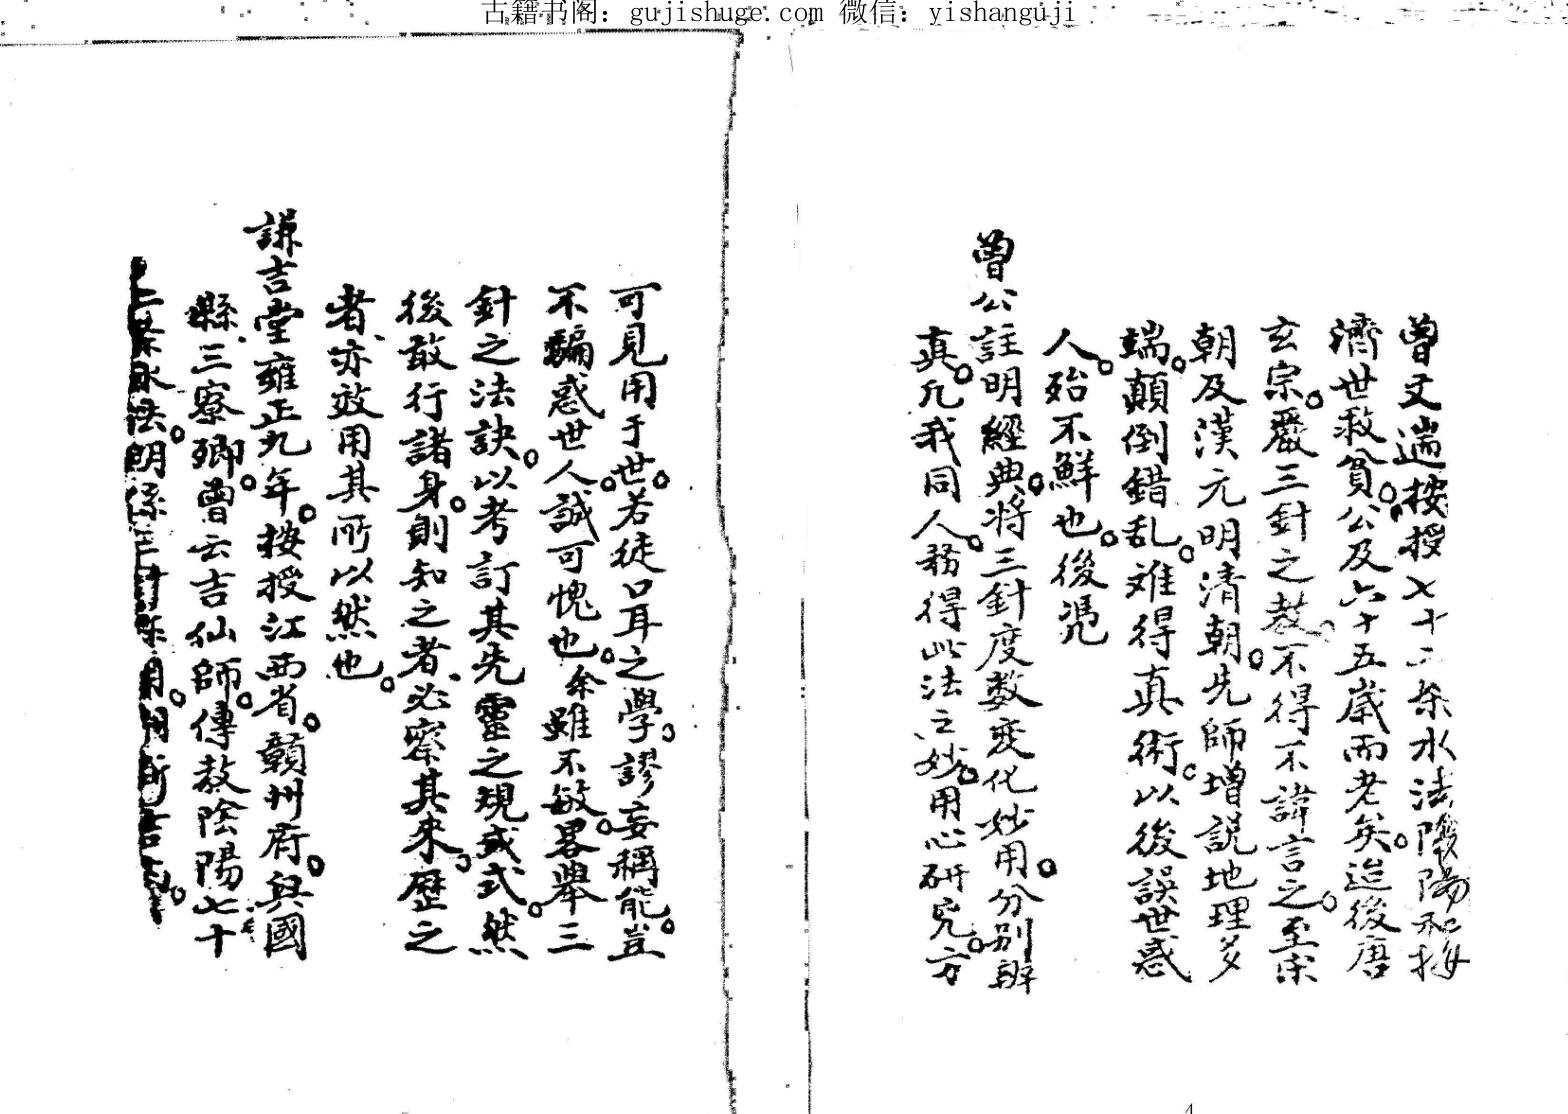 古籍书阁：gujishuge.com 微信：yishanguji
曾文遄按授七十二条水法陰陽和
濟世救貧公及六十五歲而老矣迨後唐
玄宗嚴三針之教不得不諱言之至宋
朝及漢元明清朝先師增説地理多
端顛倒錯乱难得真術以後誤世惑
人殆不鮮也後凴
曾公註明經典將三針度数变化妙用分别辨
真凢我同人務得此法之妙用心研究方
可見用于世若徒口耳之學謬妄稱能豈
不騙惑世人誠可愧也余雖不敏畧舉三
針之法訣以考訂其先靈之規或式然
後敢行諸身則知之者必察其来歷之
者亦效用其所以然也
謙吉堂雍正九年按授江西省贛州府興國
縣三寮卿曾云吉仙師傳教陰陽七十
二条水法明係三針
4